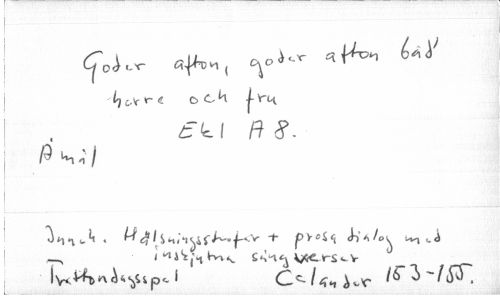 Goder afton, goder afton båd'
herre och fru
Ekl A 8.
Åmål
Inneh. Hälsningsstrofer + prosa dialog med
inskjutna sångverser
Trettondagsspel Celander 153-155.